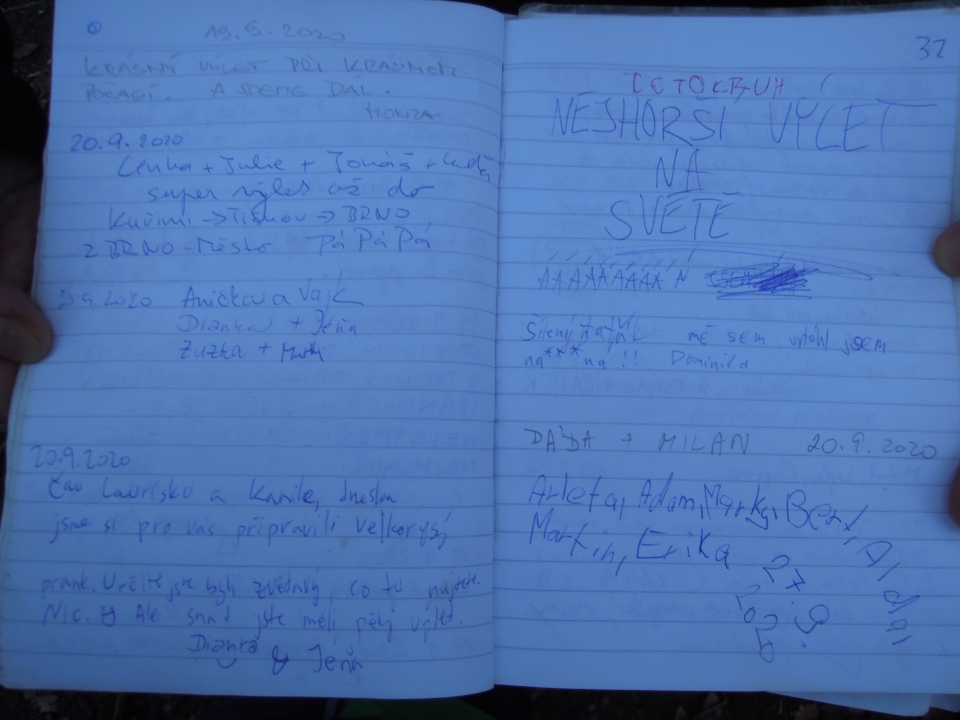 19.9.2020
KRÁSNÝ VÝLET PŘI KRÁSNÉM
POČASÍ. A JDEME DÁL.
HONZA
20.9.2020
Lenka + Julie + Tomáš +
super výlet až do
Kuřimi → Tišnov → BRNO
z BRNO-Město PÁ PÁ PÁ
9.2020 Anička a Vájk
Dianka + Jéňa
Zuzka +
20.9.2020
Čau Laurisku a Kamile, dneska
jsme si pro vás připravili velkorysý
prank. Určitě jste byli zvědavý, co tu najdete.
Nic. Ale snad jste měli pěkný výlet.
Dianka & Jéňa
32
LETOKRUH
NEJHORŠÍ VÝLET
NA
SVĚTĚ
ÁÁÁÁÁÁÁÁÁ
Šílený mě sem vytáhl jsem
na***na!! Dominika
DÁĎA + MILAN 20.9.2020
Arleta, Adam, Marky, Bert, Didi
Martin, Erika
27.9.2020